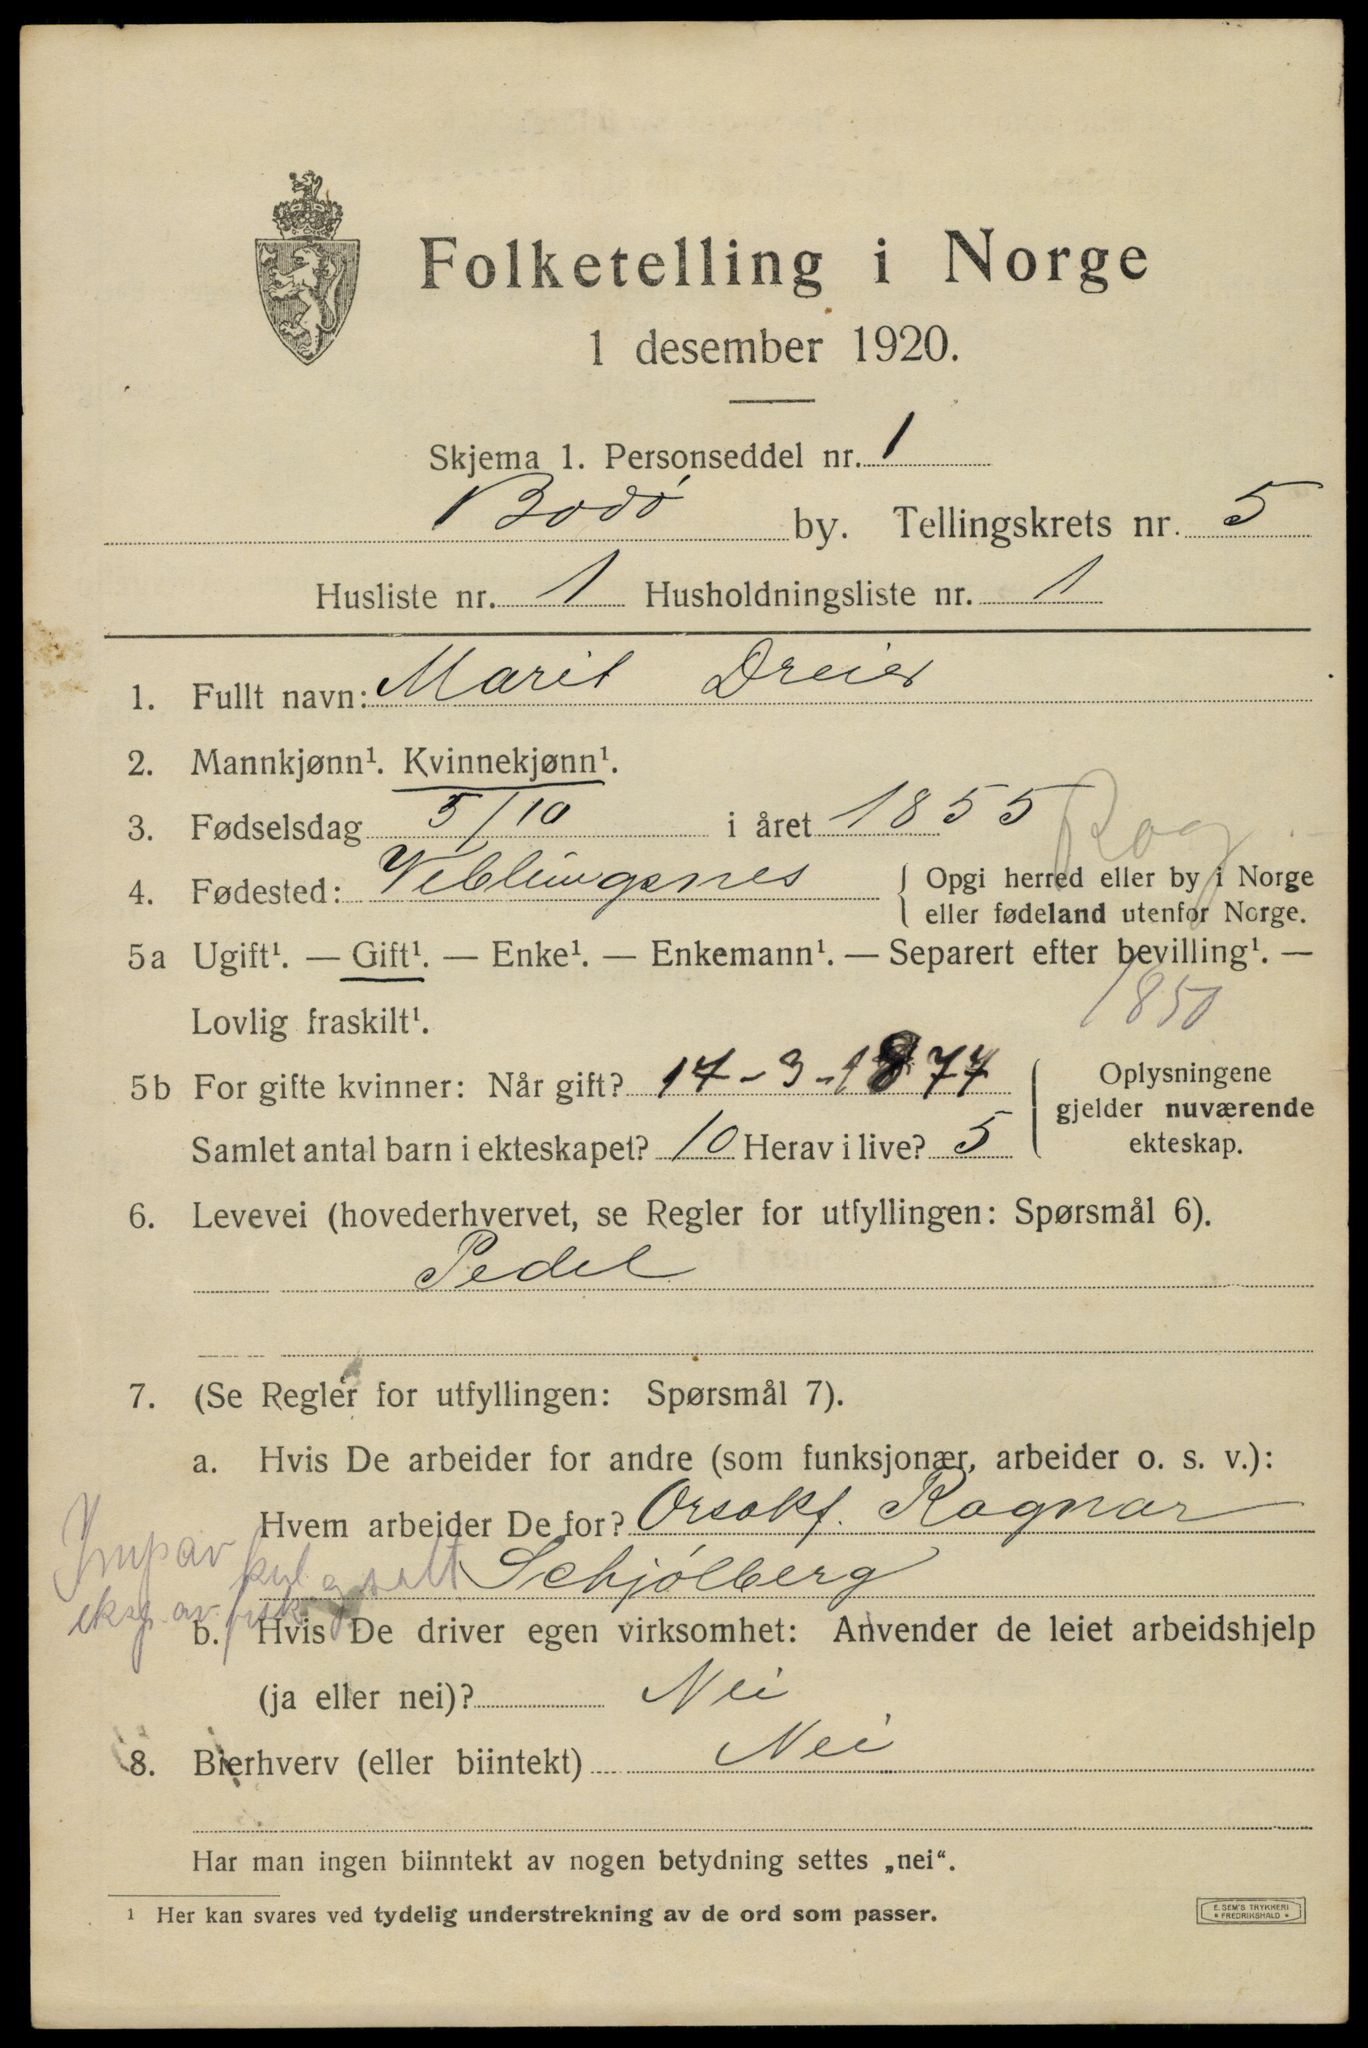 Folketelling i Norge
1 desember 1920.
Skjema 1. Personseddel nr. 1
Bodø by. Tellingskrets nr. 5
Husliste nr. 1 Husholdningsliste nr. 1
1. Fullt navn: Marit Dreier
2. Mannkjønn¹. Kvinnekjønn¹.
3. Fødselsdag 5/10 i året 1855
4. Fødested: Veblungsnes { Opgi herred eller by i Norge
eller fødeland utenfor Norge.
Rog
5a Ugift¹. — Gift¹. — Enke¹. — Enkemann¹. — Separert efter bevilling¹. —
Lovlig fraskilt¹.
1850
5b For gifte kvinner: Når gift? 14-3-1877
Samlet antal barn i ekteskapet? 10 Herav i live? 5
{ Oplysningene
gjelder nuværende
ekteskap.
6. Levevei (hovederhvervet, se Regler for utfyllingen: Spørsmål 6).
Pedel
7. (Se Regler for utfyllingen: Spørsmål 7).
a. Hvis De arbeider for andre (som funksjonær, arbeider o. s. v.):
Hvem arbeider De for? Orsakf. Ragnar
Schjølberg
Imp av kul g salt
eksp. av fisk
b. Hvis De driver egen virksomhet: Anvender de leiet arbeidshjelp
(ja eller nei)? Nei
8. Bierhverv (eller biintekt) Nei
Har man ingen biinntekt av nogen betydning settes „nei“.
¹ Her kan svares ved tydelig understrekning av de ord som passer.
E. SEM'S TRYKKERI
* FREDRIKSHALD *